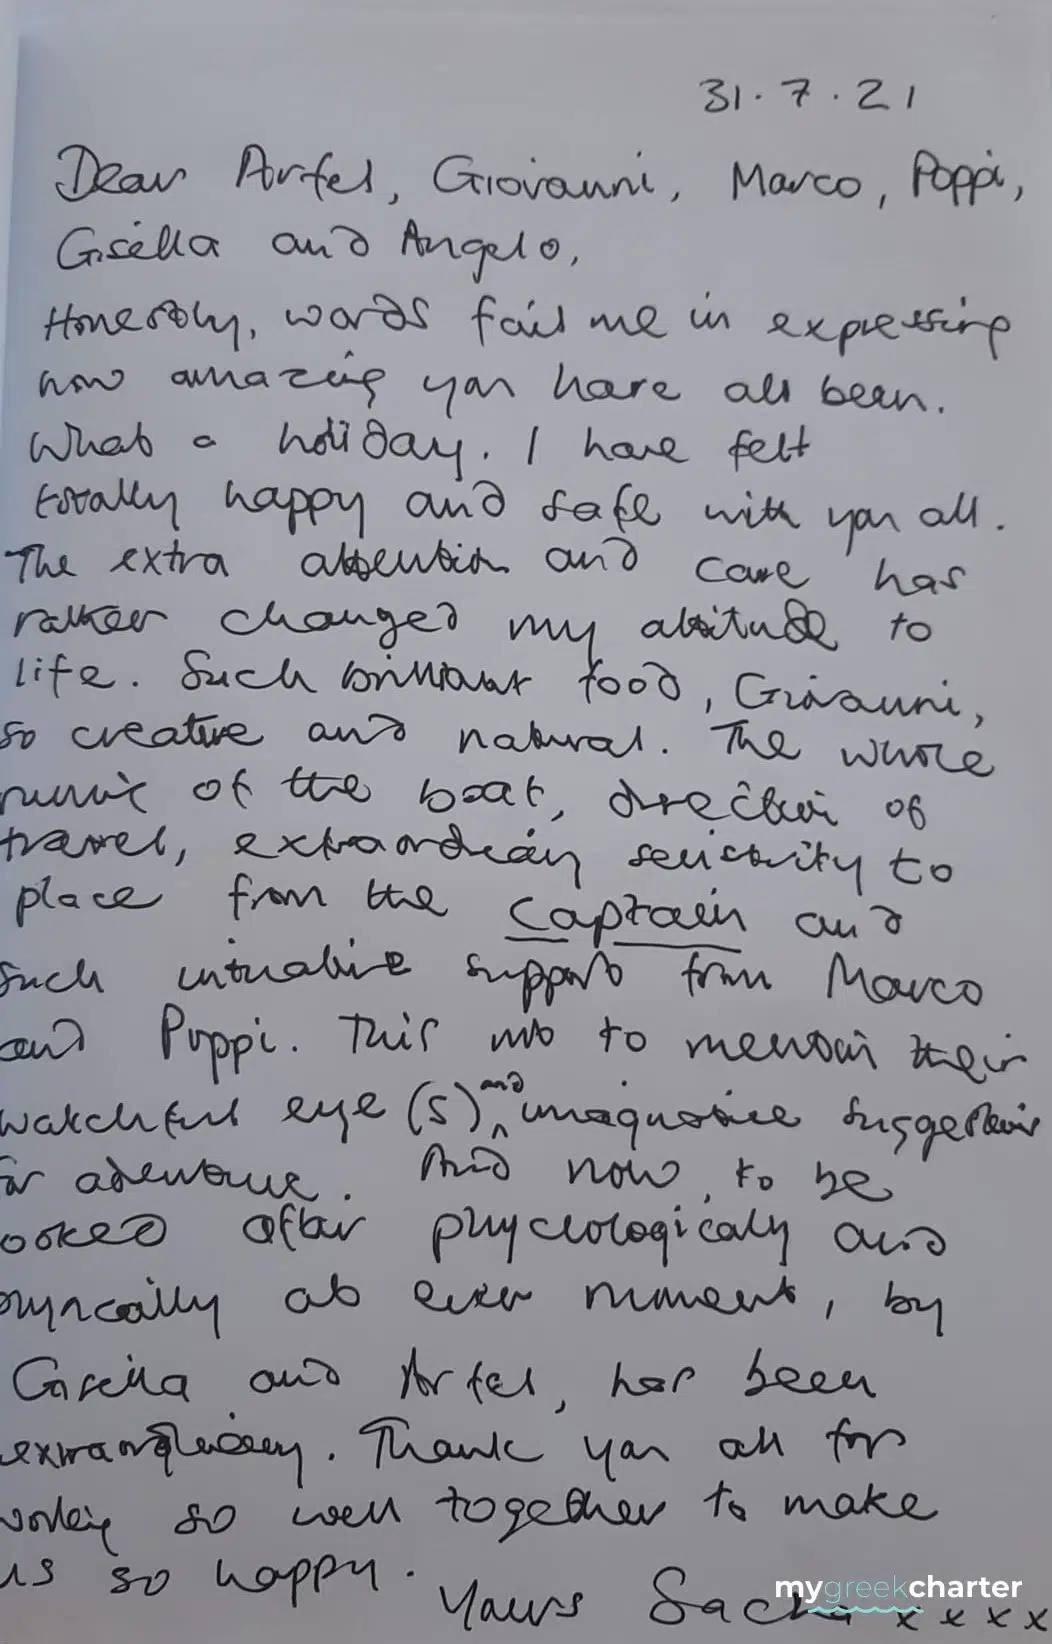 31.7.21
Dear Artel, Giovanni, Marco, Poppi,
Gisella and Angelo,
Honestly, words fail me in expressing
how amazing you have all been.
What a holiday. I have felt
totally happy and safe with you all.
The extra attention and care has
rather changed my attitude to
life. Such brilliant food, Giovanni,
so creative and natural. The whole
music of the boat, direction of
travel, extraordinary sensitivity to
place from the Captain and
such intuitive support from Marco
and Poppi. This not to mention their
watchful eye (s) and imaginative suggestions
for adventure. And now, to be
ooked after phycologically and
physically at ever moment, by
Gisella and Artel, has been
extraordinary. Thank you all for
working so well together to make
us so happy.
Yours Sacha x x x x
mygreekcharter